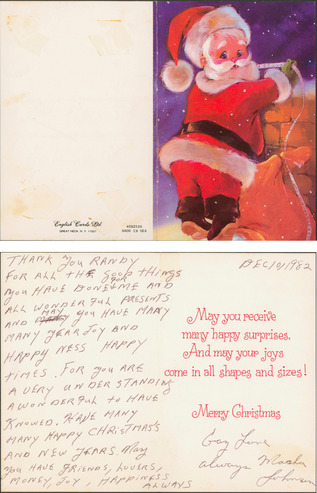 English Cards Ltd
GREAT NECK, N.Y. 11021
MADE IN USA
THANK YOU RANDY
FOR ALL THE GOOD THINGS
YOU HAVE DONE FOR ME AND
ALL WONDERFUL PRESENTS
AND MAY YOU HAVE MANY
MANY YEAR JOY AND
HAPPYNESS HAPPY
TIMES. FOR YOU ARE
A VERY UNDERSTANDING
A WONDERFUL TO HAVE
KNOWED. HAVE MANY
MANY HAPPY CHRISTMAS
AND NEW YEARS. May
you HAVE FRIENDS, LOVERS,
MONEY, JOY, HAPPINESS
ALWAYS
DEC/10/1982
May you receive
many happy surprises,
And may your joys
come in all shapes and sizes!
Merry Christmas
Gay Love
always Marsha
Johnson